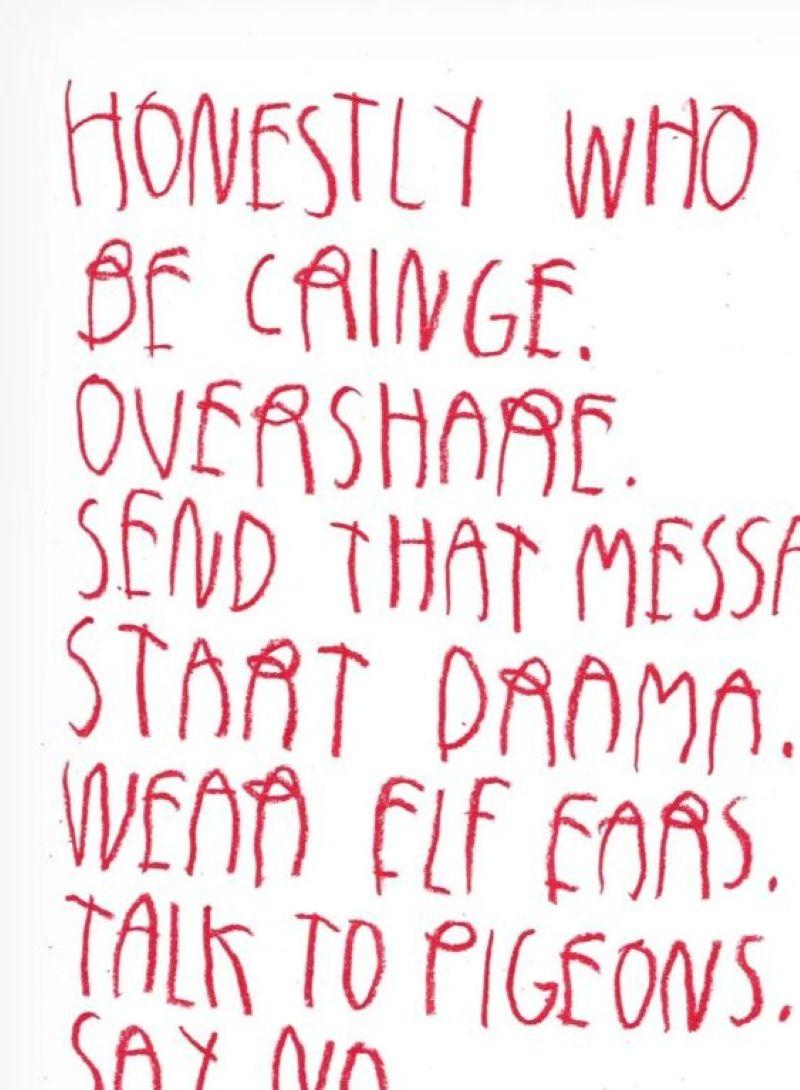 HONESTLY WHO
BE CRINGE.
OVERSHARE.
SEND THAT MESSA
START DRAMA.
WEAR ELF EARS.
TALK TO PIGEONS.
SAY NO